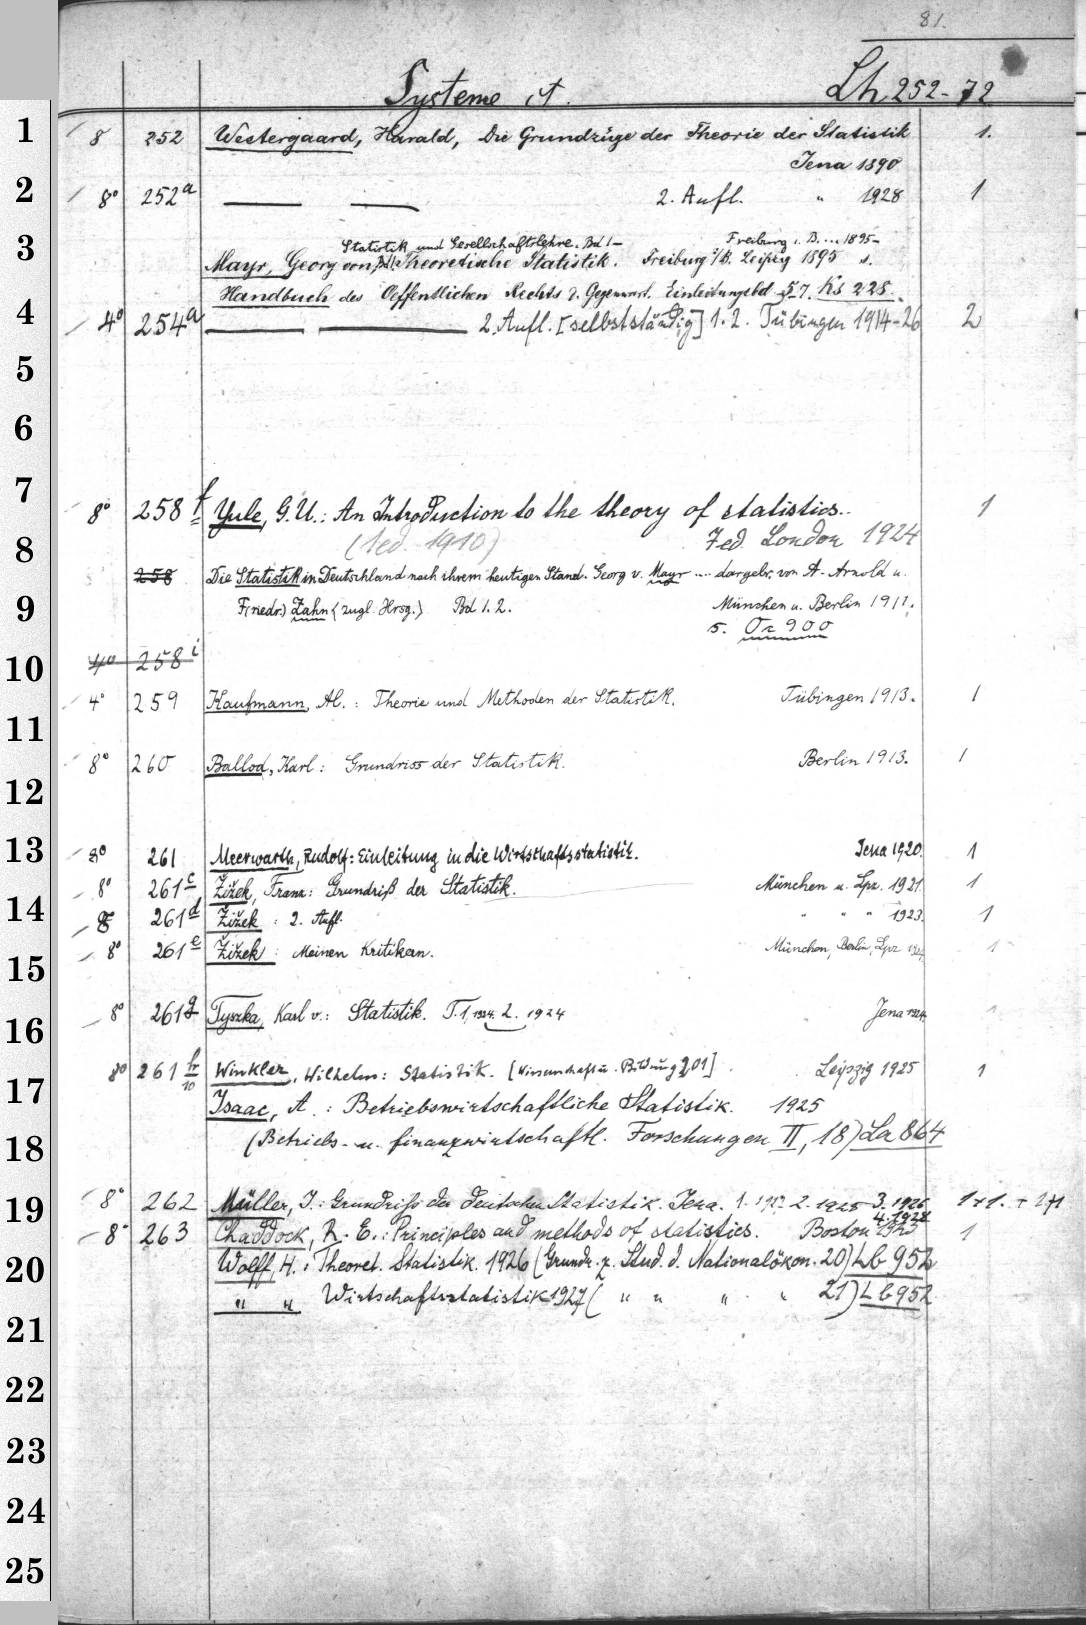 81.
Systeme ct. Lh 252-72
1 8 252 Westergaard, Harald, Die Grundzüge der Theorie der Statistik 1.
Jena 1890
2 8° 252a — — 2. Aufl. " 1928 1
3 Statistik und Gesellschaftslehre. Bd 1- Freiburg i. B. ... 1895-
Mayr, Georg von, Bd 1: Theoretische Statistik. Freiburg i/B. Leipzig 1895 s.
Handbuch des Oeffentlichen Rechts d. Gegenwart. Einleitungsbd. Ks 228.
4 4° 254a — — 2. Aufl. [selbstständig] 1. 2. Tübingen 1914-26 2
5
6
7 8° 258f Yule, G. U.: An Introduction to the theory of statistics.. 1
8 (1ed. 1910) 7ed. London 1924
258 Die Statistik in Deutschland nach ihrem heutigen Stand. Georg v. Mayr .... dargebr. von A. Arnold u.
9 F(riedr.) Zahn (zugl. Hrsg.) Bd 1. 2. München u. Berlin 1911.
s. Oz 900
10 4° 258i
4° 259 Kaufmann, Al.: Theorie und Methoden der Statistik. Tübingen 1913. 1
11
8° 260 Ballod, Karl: Grundriss der Statistik. Berlin 1913. 1
12
13 8° 261 Meerwarth, Rudolf: Einleitung in die Wirtschaftsstatistik. Jena 1920. 1
8° 261c Žižek, Franz: Grundriß der Statistik. München u. Lpz. 1921. 1
14 8 261d Žižek: 2. Aufl. " " " 1923. 1
8° 261e Žižek: Meinen Kritikern. München, Berlin, Lpz 1
15
16 8° 261g Tyszka, Karl v.: Statistik. T. 1, 1924. 2. 1924 Jena 1924.
8° 261h/10 Winkler, Wilhelm: Statistik. [Wissenschaft u. Bildung 201] Leipzig 1925 1
17 Isaac, A.: Betriebswirtschaftliche Statistik. 1925
18 (Betriebs- u. finanzwirtschaftl. Forschungen II, 18) La 864
19 8° 262 Müller, J.: Grundriß der deutschen Statistik. Jena. 1. 2. 1925 3. 1926 1+1. + 1+1
4. 1928
8° 263 Chaddock, R. E.: Principles and methods of statistics. Boston 1
20 Wolff, H.: Theoret. Statistik. 1926 (Grundr. z. Stud. d. Nationalökon. 20) Lb 952
" " Wirtschaftsstatistik 1927 ( " " " " 21) Lb 952
21
22
23
24
25